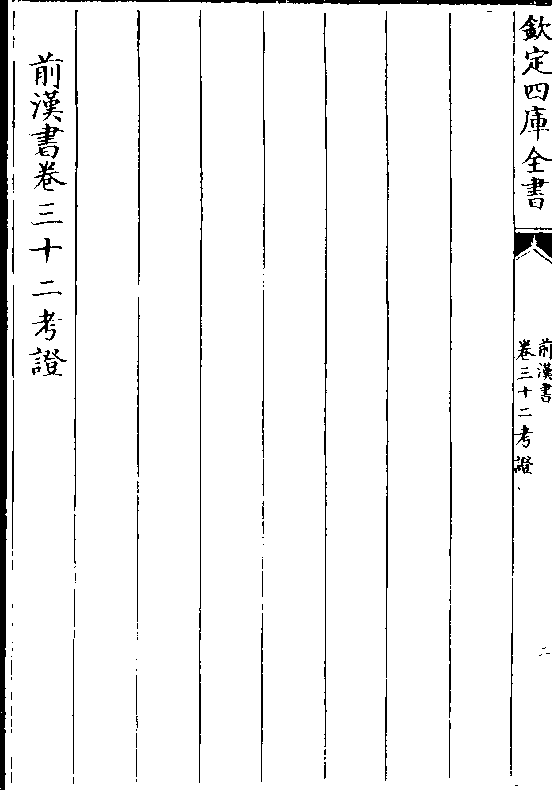 欽定四庫全書
前漢書
卷三十二考證
二
前漢書卷三十二考證